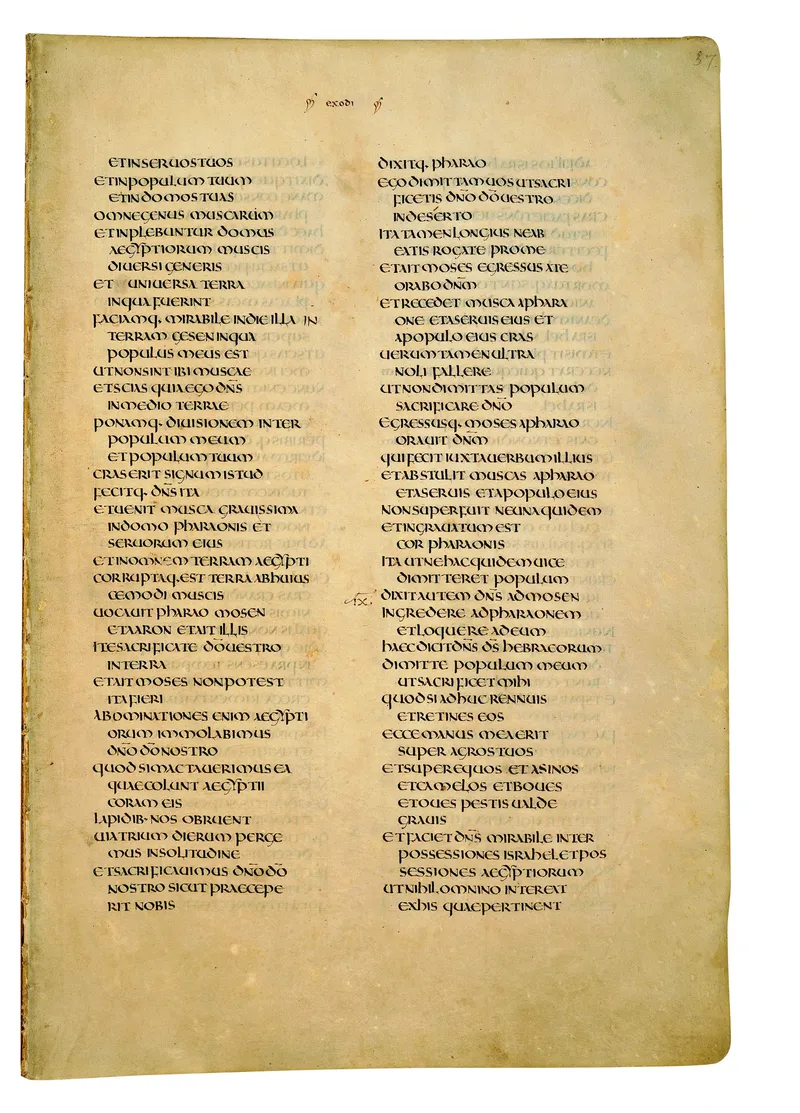 37
exodi
ET IN SERUOS TUOS
ET IN POPULUM TUUM
ET IN DOMOS TUAS
OMNE GENUS MUSCARUM
ET INPLEBUNTUR DOMUS
AEGYPTIORUM MUSCIS
DIUERSI GENERIS
ET UNIUERSA TERRA
IN QUA FUERINT
FACIAMQ· MIRABILE IN DIE ILLA IN
TERRAM GESEN IN QUA
POPULUS MEUS EST
UT NON SINT IBI MUSCAE
ET SCIAS QUIA EGO DN̄S
IN MEDIO TERRAE
PONAMQ· DIUISIONEM INTER
POPULUM MEUM
ET POPULUM TUUM
CRAS ERIT SIGNUM ISTUD
FECITQ· DN̄S ITA
ET UENIT MUSCA GRAUISSIMA
IN DOMO PHARAONIS ET
SERUORUM EIUS
ET IN OMNEM TERRAM AEGYPTI
CORRUPTAQ· EST TERRA AB HUIUS
CEMODI MUSCIS
UOCAUIT PHARAO MOSEN
ET AARON ET AIT ILLIS
ITE SACRIFICATE DŌ UESTRO
IN TERRA
ET AIT MOSES NON POTEST
ITA FIERI
ABOMINATIONES ENIM AEGYPTI
ORUM IMMOLABIMUS
DN̄O DŌ NOSTRO
QUOD SI MACTAUERIMUS EA
QUAE COLUNT AEGYPTII
CORAM EIS
LAPIDIB· NOS OBRUENT
UIA TRIUM DIERUM PERGE
MUS IN SOLITUDINE
ET SACRIFICAUIMUS DN̄O DŌ
NOSTRO SICUT PRAECEPE
RIT NOBIS
DIXITQ· PHARAO
EGO DIMITTAM UOS UT SACRI
FICETIS DN̄O DŌ UESTRO
IN DESERTO
ITA TAMEN LONGIUS NE AB
EATIS ROGATE PRO ME
ET AIT MOSES EGRESSUS A TE
ORABO DN̄M
ET RECEDET MUSCA A PHARA
ONE ET A SERUIS EIUS ET
A POPULO EIUS CRAS
UERUM TAMEN ULTRA
NOLI FALLERE
UT NON DIMITTAS POPULUM
SACRIFICARE DN̄O
EGRESSUSQ· MOSES A PHARAO
ORAUIT DN̄M
QUI FECIT IUXTA UERBUM ILLIUS
ET ABSTULIT MUSCAS A PHARAO
ET A SERUIS ET A POPULO EIUS
NON SUPERFUIT NE UNA QUIDEM
ET INGRAUATUM EST
COR PHARAONIS
ITA UT NE HAC QUIDEM UICE
DIMITTERET POPULUM
IX. DIXIT AUTEM DN̄S AD MOSEN
INGREDERE AD PHARAONEM
ET LOQUERE AD EUM
HAEC DICIT DN̄S DS̄ HEBRAEORUM
DIMITTE POPULUM MEUM
UT SACRIFICET MIHI
QUOD SI ADHUC RENNUIS
ET RETINES EOS
ECCE MANUS MEA ERIT
SUPER AGROS TUOS
ET SUPER EQUOS ET ASINOS
ET CAMELOS ET BOUES
ET OUES PESTIS UALDE
GRAUIS
ET FACIET DN̄S MIRABILE INTER
POSSESSIONES ISRAHEL ET POS
SESSIONES AEGYPTIORUM
UT NIHIL OMNINO INTEREAT
EX HIS QUAE PERTINENT